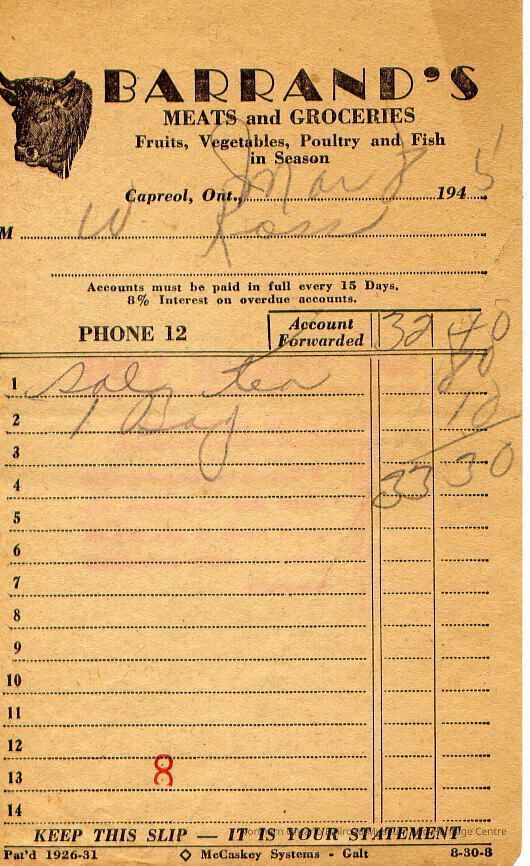 BARRAND'S
MEATS and GROCERIES
Fruits, Vegetables, Poultry and Fish
in Season
Capreol, Ont., Mar 8 1945
M W Ross
Accounts must be paid in full every 15 Days.
8% Interest on overdue accounts.
PHONE 12
Account Forwarded 32 40
1 tea 80
2 1 Bag 10
3
4 33 30
5
6
7
8
9
10
11
12
13 8
14
KEEP THIS SLIP — IT IS YOUR STATEMENT
Pat'd 1926-31 ◇ McCaskey Systems - Galt 8-30-6